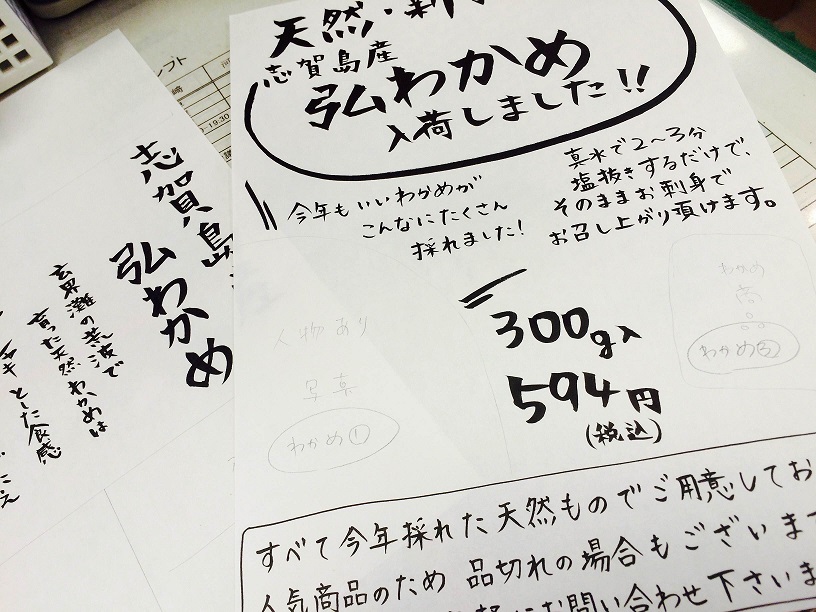 天然・新
志賀島産
弘わかめ
入荷しました!!
今年もいいわかめが
こんなにたくさん
採れました!
真水で2〜3分
塩抜きするだけで、
そのままお刺身で
お召し上がり頂けます。
300g入
594円
(税込)
人物あり
写真
わかめ①
わかめ
商
わかめ②
すべて今年採れた天然ものでご用意してお
人気商品のため 品切れの場合もございます
お問い合わせ下さいま
志賀島
弘わかめ
玄界灘の荒波で
育った天然わかめは
とした食感
フト
崎
19:30